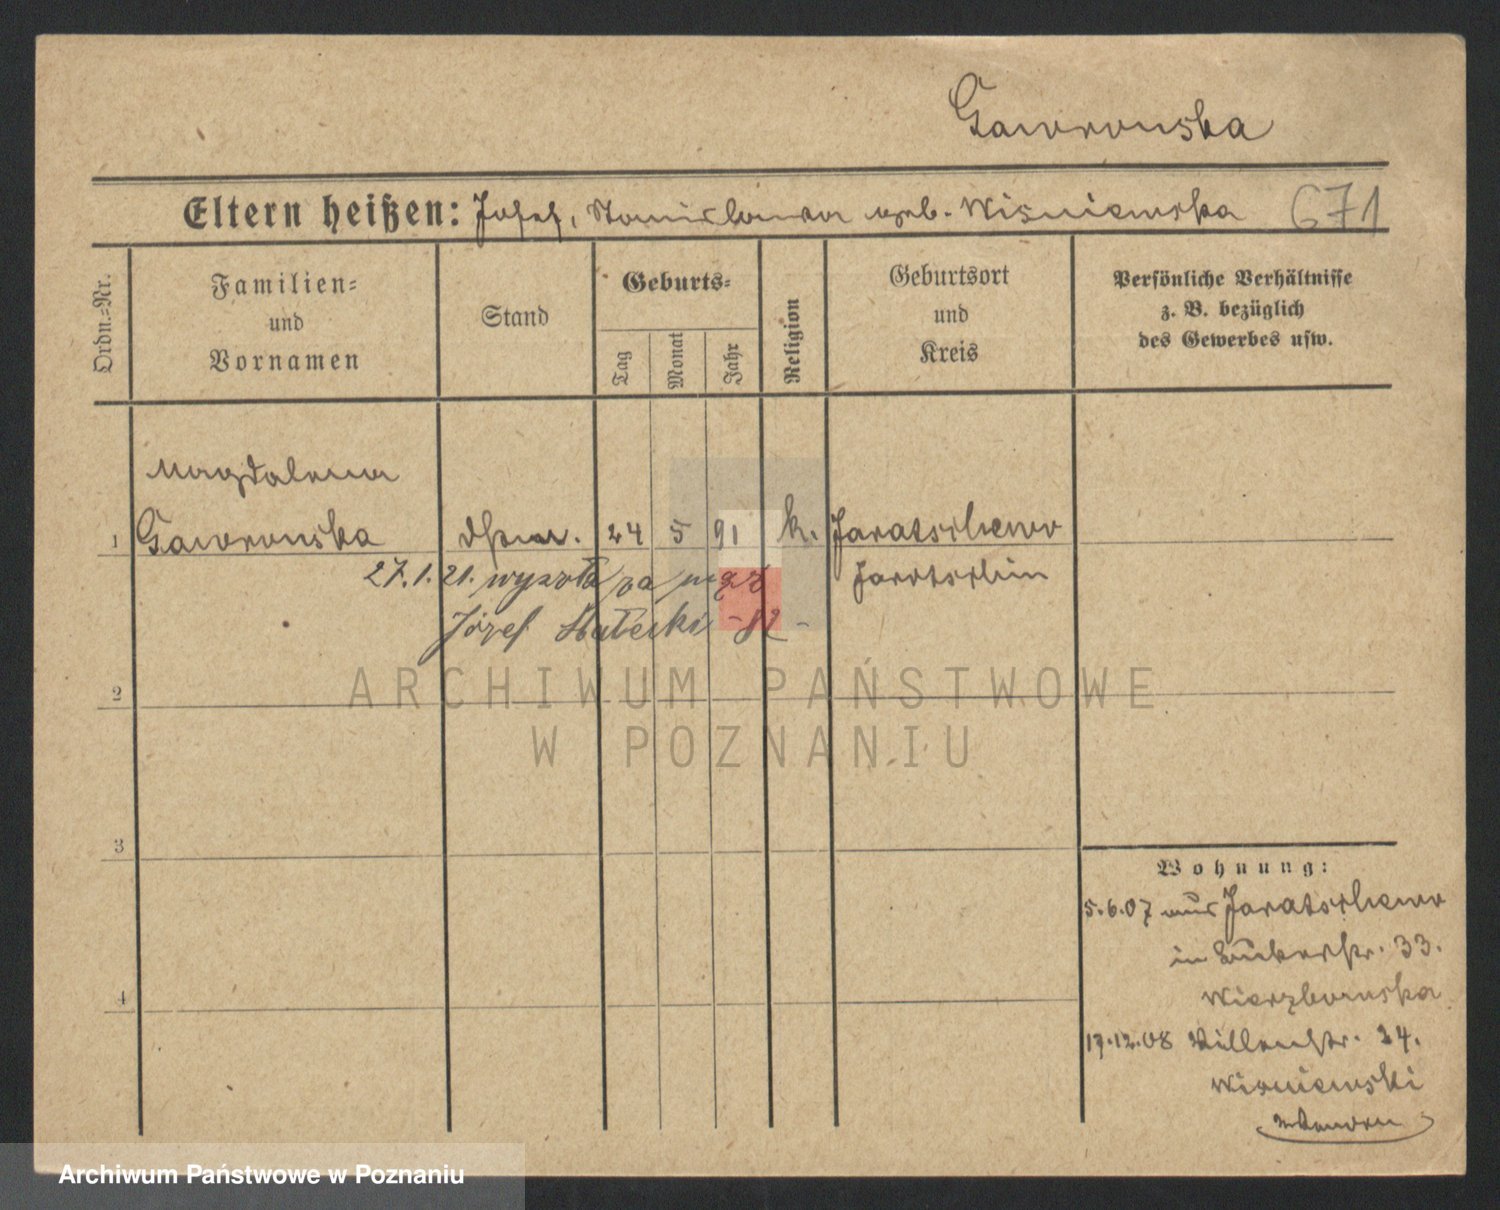 Gaworonska
Eltern heißen: Josef, Stanislawa geb. Wisniewska 671
Ordn.-Nr.
Familien-
und
Vornamen
Stand
Geburts-
Tag
Monat
Jahr
Religion
Geburtsort
und
Kreis
Persönliche Verhältnisse
z. B. bezüglich
des Gewerbes usw.
Magdalena
1 Gaworonska 24 5 91 k. Jaratschewo
27.1.21. wyszła za mąż Jarotschin
Józef
2
ARCHIWUM PAŃSTWOWE
W POZNANIU
3
4
Wohnung:
5.6.07 aus Jaratschewo
in 33.
Wierzbowska
17.12.08 Villenstr. 24.
Wisniewski
Archiwum Państwowe w Poznaniu